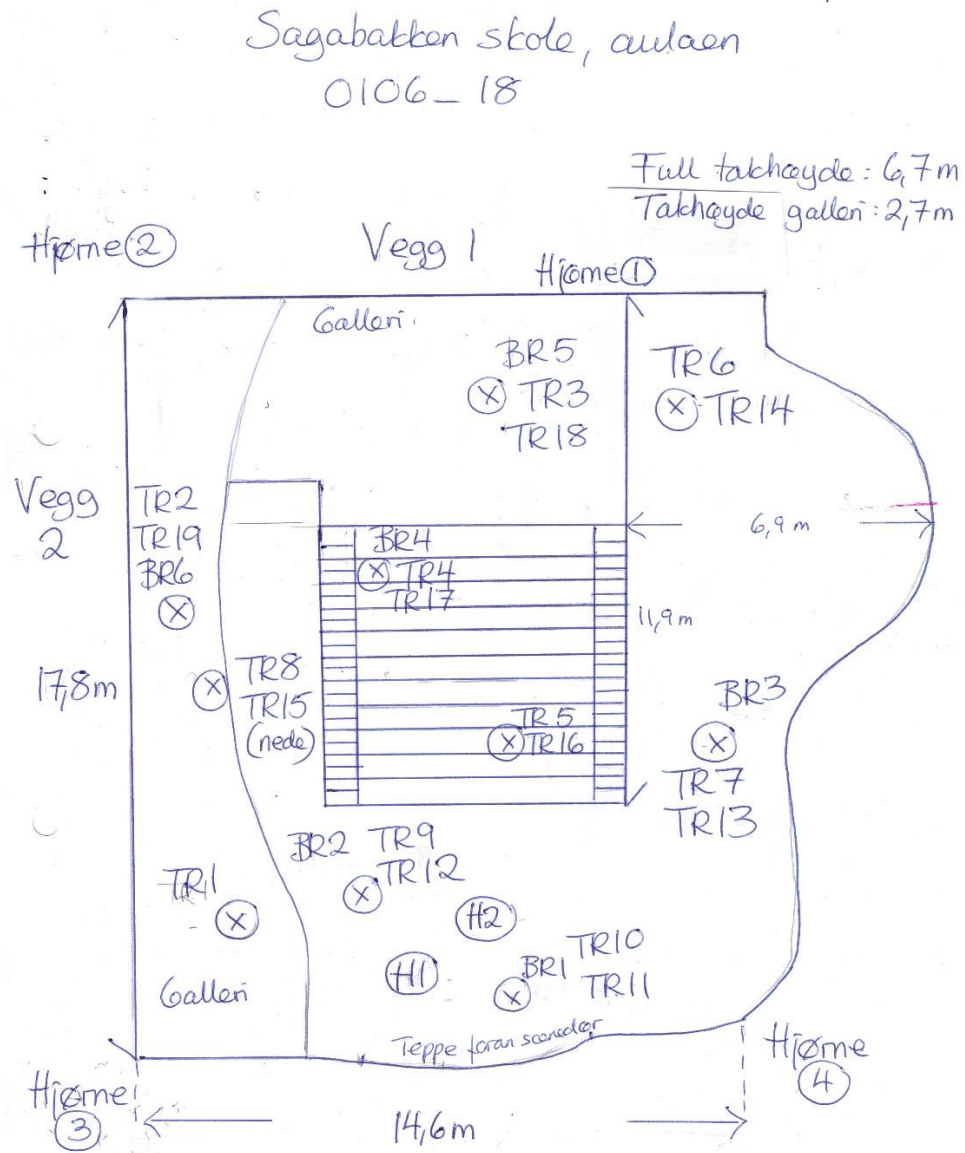 Sagabakken skole, aulaen
0106_18
Full takhøyde: 6,7m
Takhøyde galleri: 2,7m
Hjørne 2
Vegg 1
Hjørne 1
Galleri
BR5
TR3
TR18
TR6
TR14
Vegg
2
TR2
TR19
BR6
BR4
TR4
TR17
6,9 m
11,9 m
17,8m
TR8
TR15
(nede)
TR5
TR16
BR3
TR7
TR13
BR2 TR9
TR12
TR1
H2
H1
BR1 TR10
TR11
Galleri
Teppe foran scenedør
Hjørne
3
Hjørne
4
14,6m